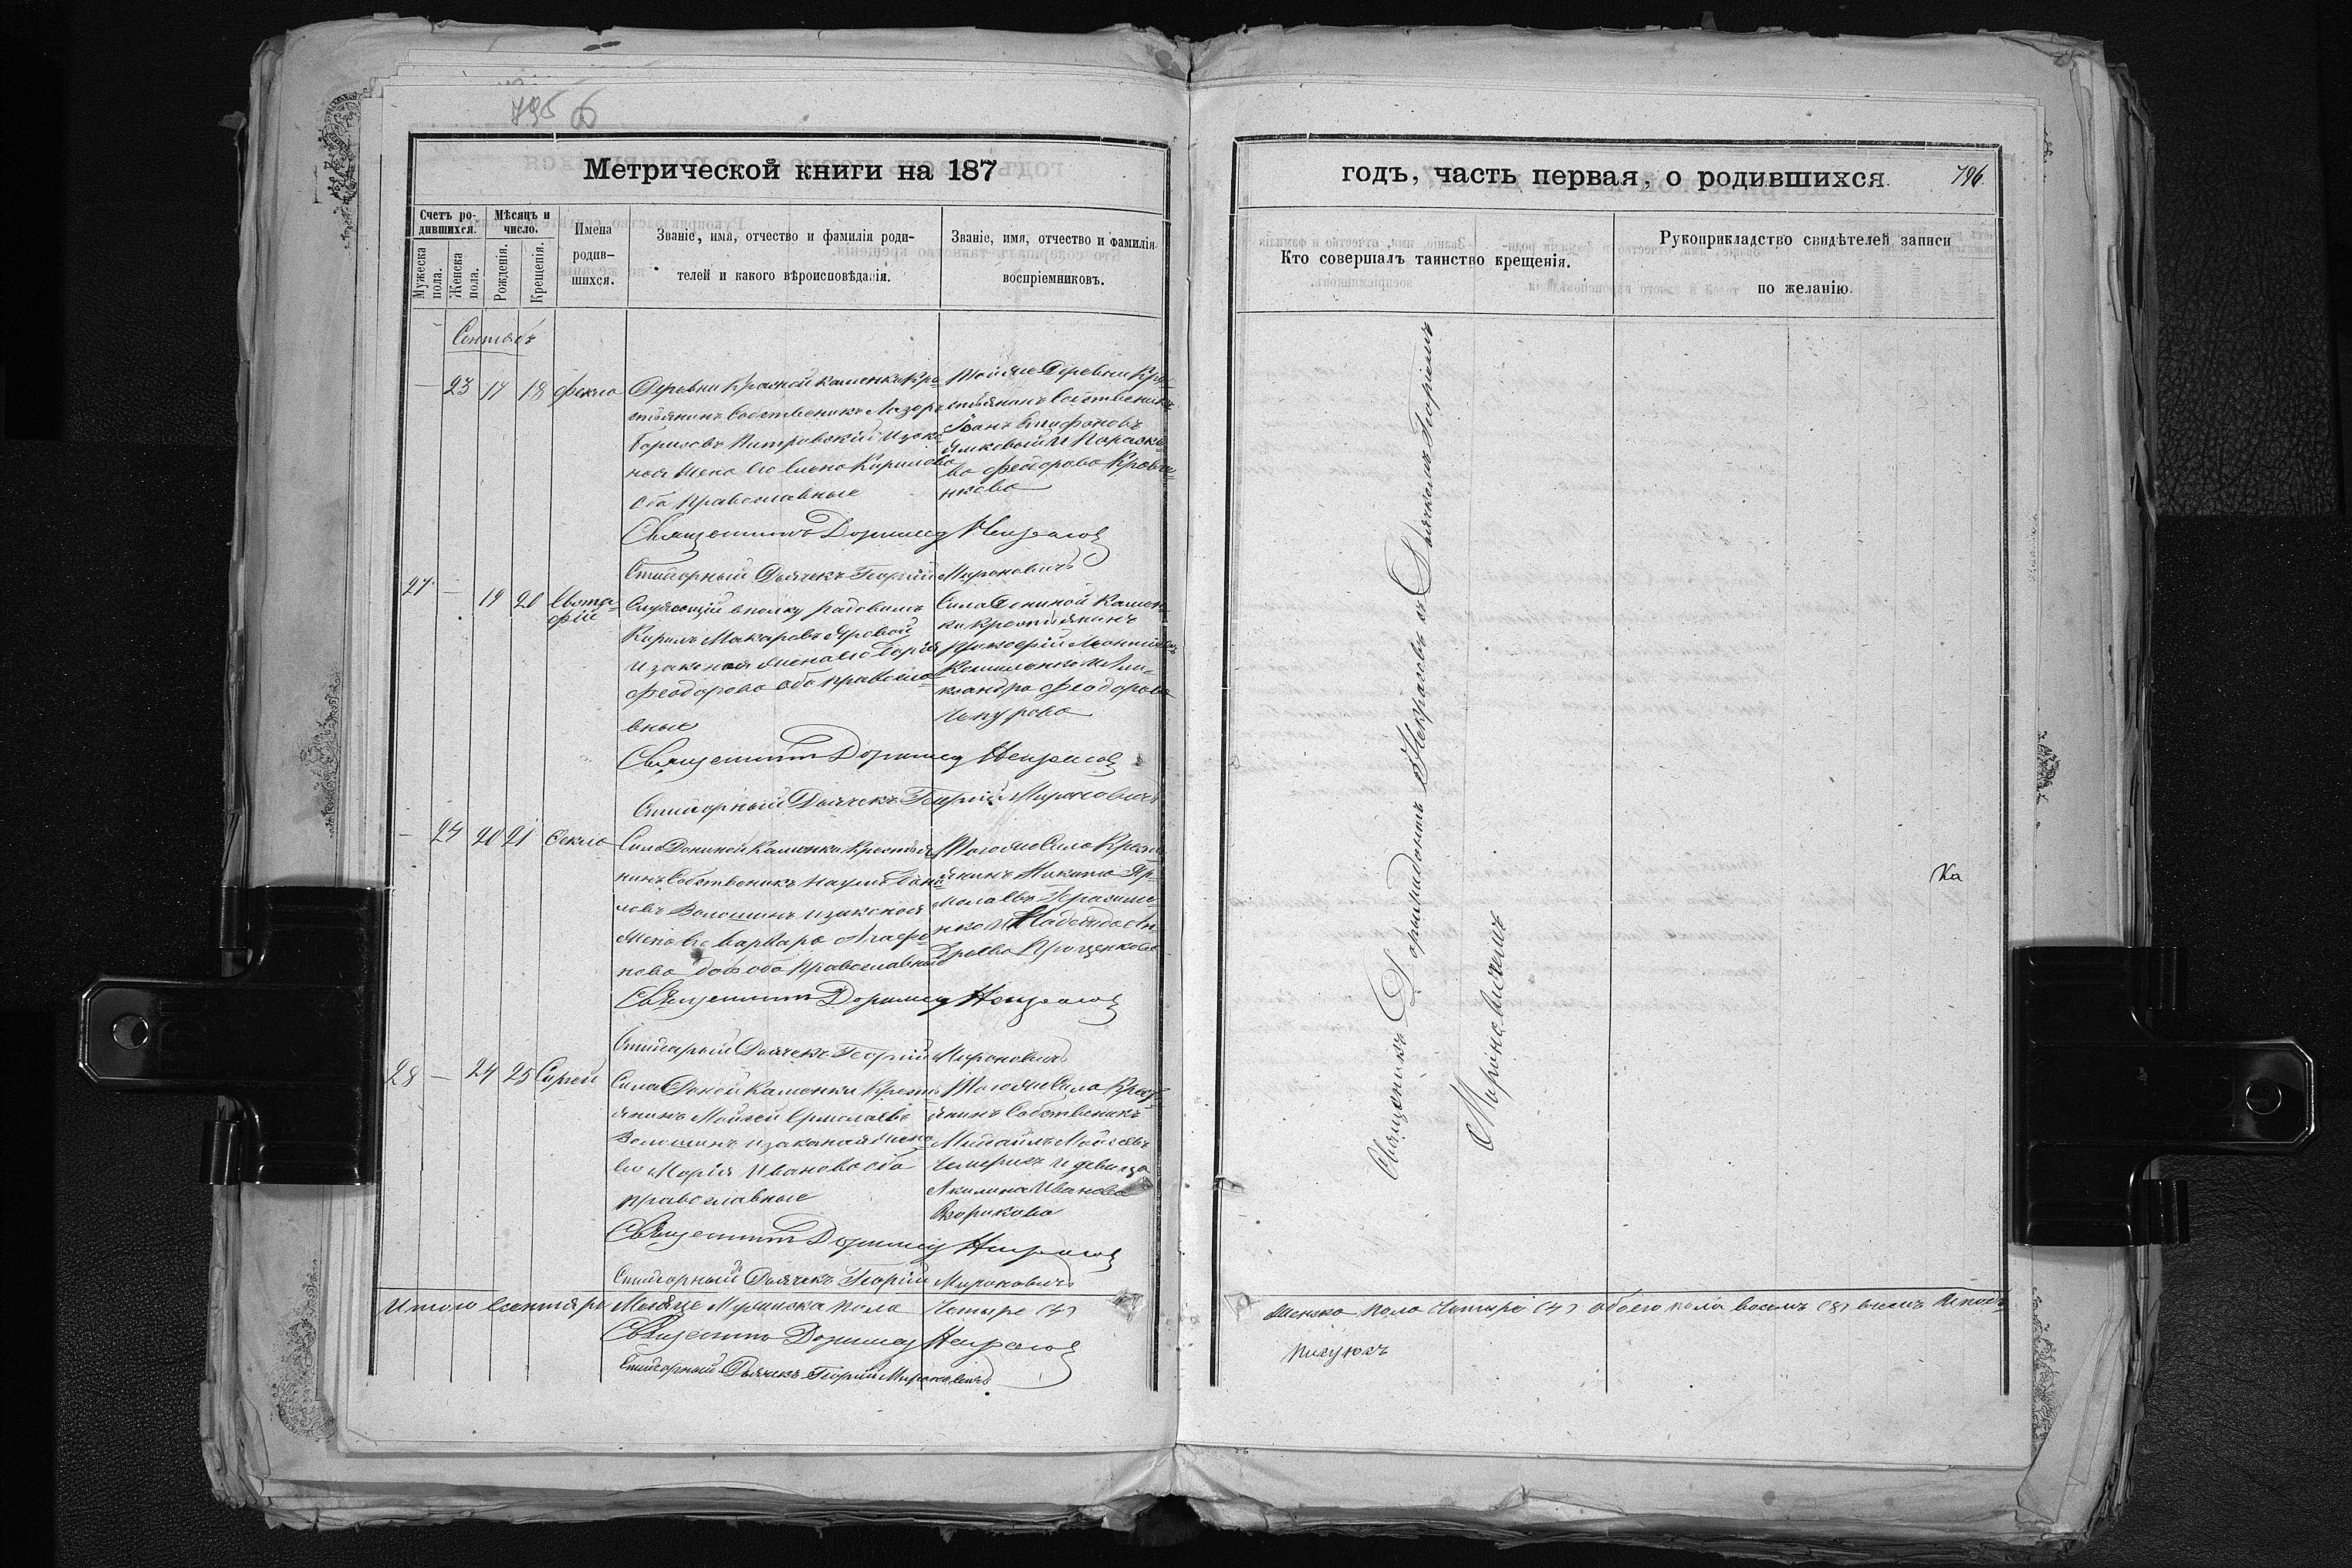 795 об
Метрической книги на 187
Счетъ ро-
дившихся.
Мужеска
пола.
Женска
пола.
Мѣсяцъ и
число.
Рожденія.
Крещенія.
Имена
родив-
шихся.
Званіе, имя, отчество и фамилія роди-
телей и какого вѣроисповѣданія.
Званіе, имя, отчество и фамилія
воспріемниковъ.
Сентябъ
— 23 17 18 Фекла
Деревни Красной каменки Кре
стьянинъ Собственикъ Лазоръ
Борисовъ Питровскій и зако
ная жена Его Елена Кирилова
оба православные
Тойже Деревни Кре
стьянинъ Собственикъ
Іоанъ Епифановъ
и Параске
ва Феодорова
Священникъ Доримед Некрасов
Стихарный Дьячекъ Георгій Мироновичъ
27. — 19 20 Евста
фій
Служащій вполку радовымъ
Кирилъ Макаровъ Яровой
и законая жена Его Марія
Феодорова оба правосла
вные
Села Дониной Камен
ки крестьянинъ
Прокофій Леонтіевъ
и Але
ксандра Феодорова
Чепурова
Священникъ Доримед Некрасов
Стихарный Дьячекъ Георгій Мироновичъ
— 24 20 21 Фекла
Села Дониной Каменки Крестья
нинъ Собственикъ Наумъ Дани
ловъ Волошинъ и законая
жена Его Варвара Агафо
нова оба православные
Тогоже Села Кресть
янинъ Никита Яр
молаевъ Герасиме
нко и Надежда Ан
дреева Проценкова
Священникъ Доримед Некрасов
Стихарый Дьячекъ Георгій Мироновичъ
28 — 24 25 Сергей
Села Доной Каменки Кресть
янинъ Мойсей Ермолаевъ
Волошинъ и законая жена
Его Марія Иванова оба
православные
Тогоже Села Кресть
янинъ Собственикъ
Михаилъ Мойсеевъ
Чемерисъ и девица
Акилина Иванова
Священникъ Доримед Некрасов
Стихарный Дьячекъ Георгій Мироновичъ
Итого Всентябре Месяце Мужиска пола Четыре (4)
Священникъ Доримед Некрасов
Стихарный Дьячекъ Георгій Мироновичъ
годъ, часть первая, о родившихся
796.
Кто совершалъ таинство крещенія.
Рукоприкладство свидѣтелей записи
по желанію.
Священикъ Доримидонтъ Некрасовъ съ Дьячкомъ Георгіемъ
Мироновичемъ
Ка
Женска пола Четыре (4) обоего пола восемь (8)